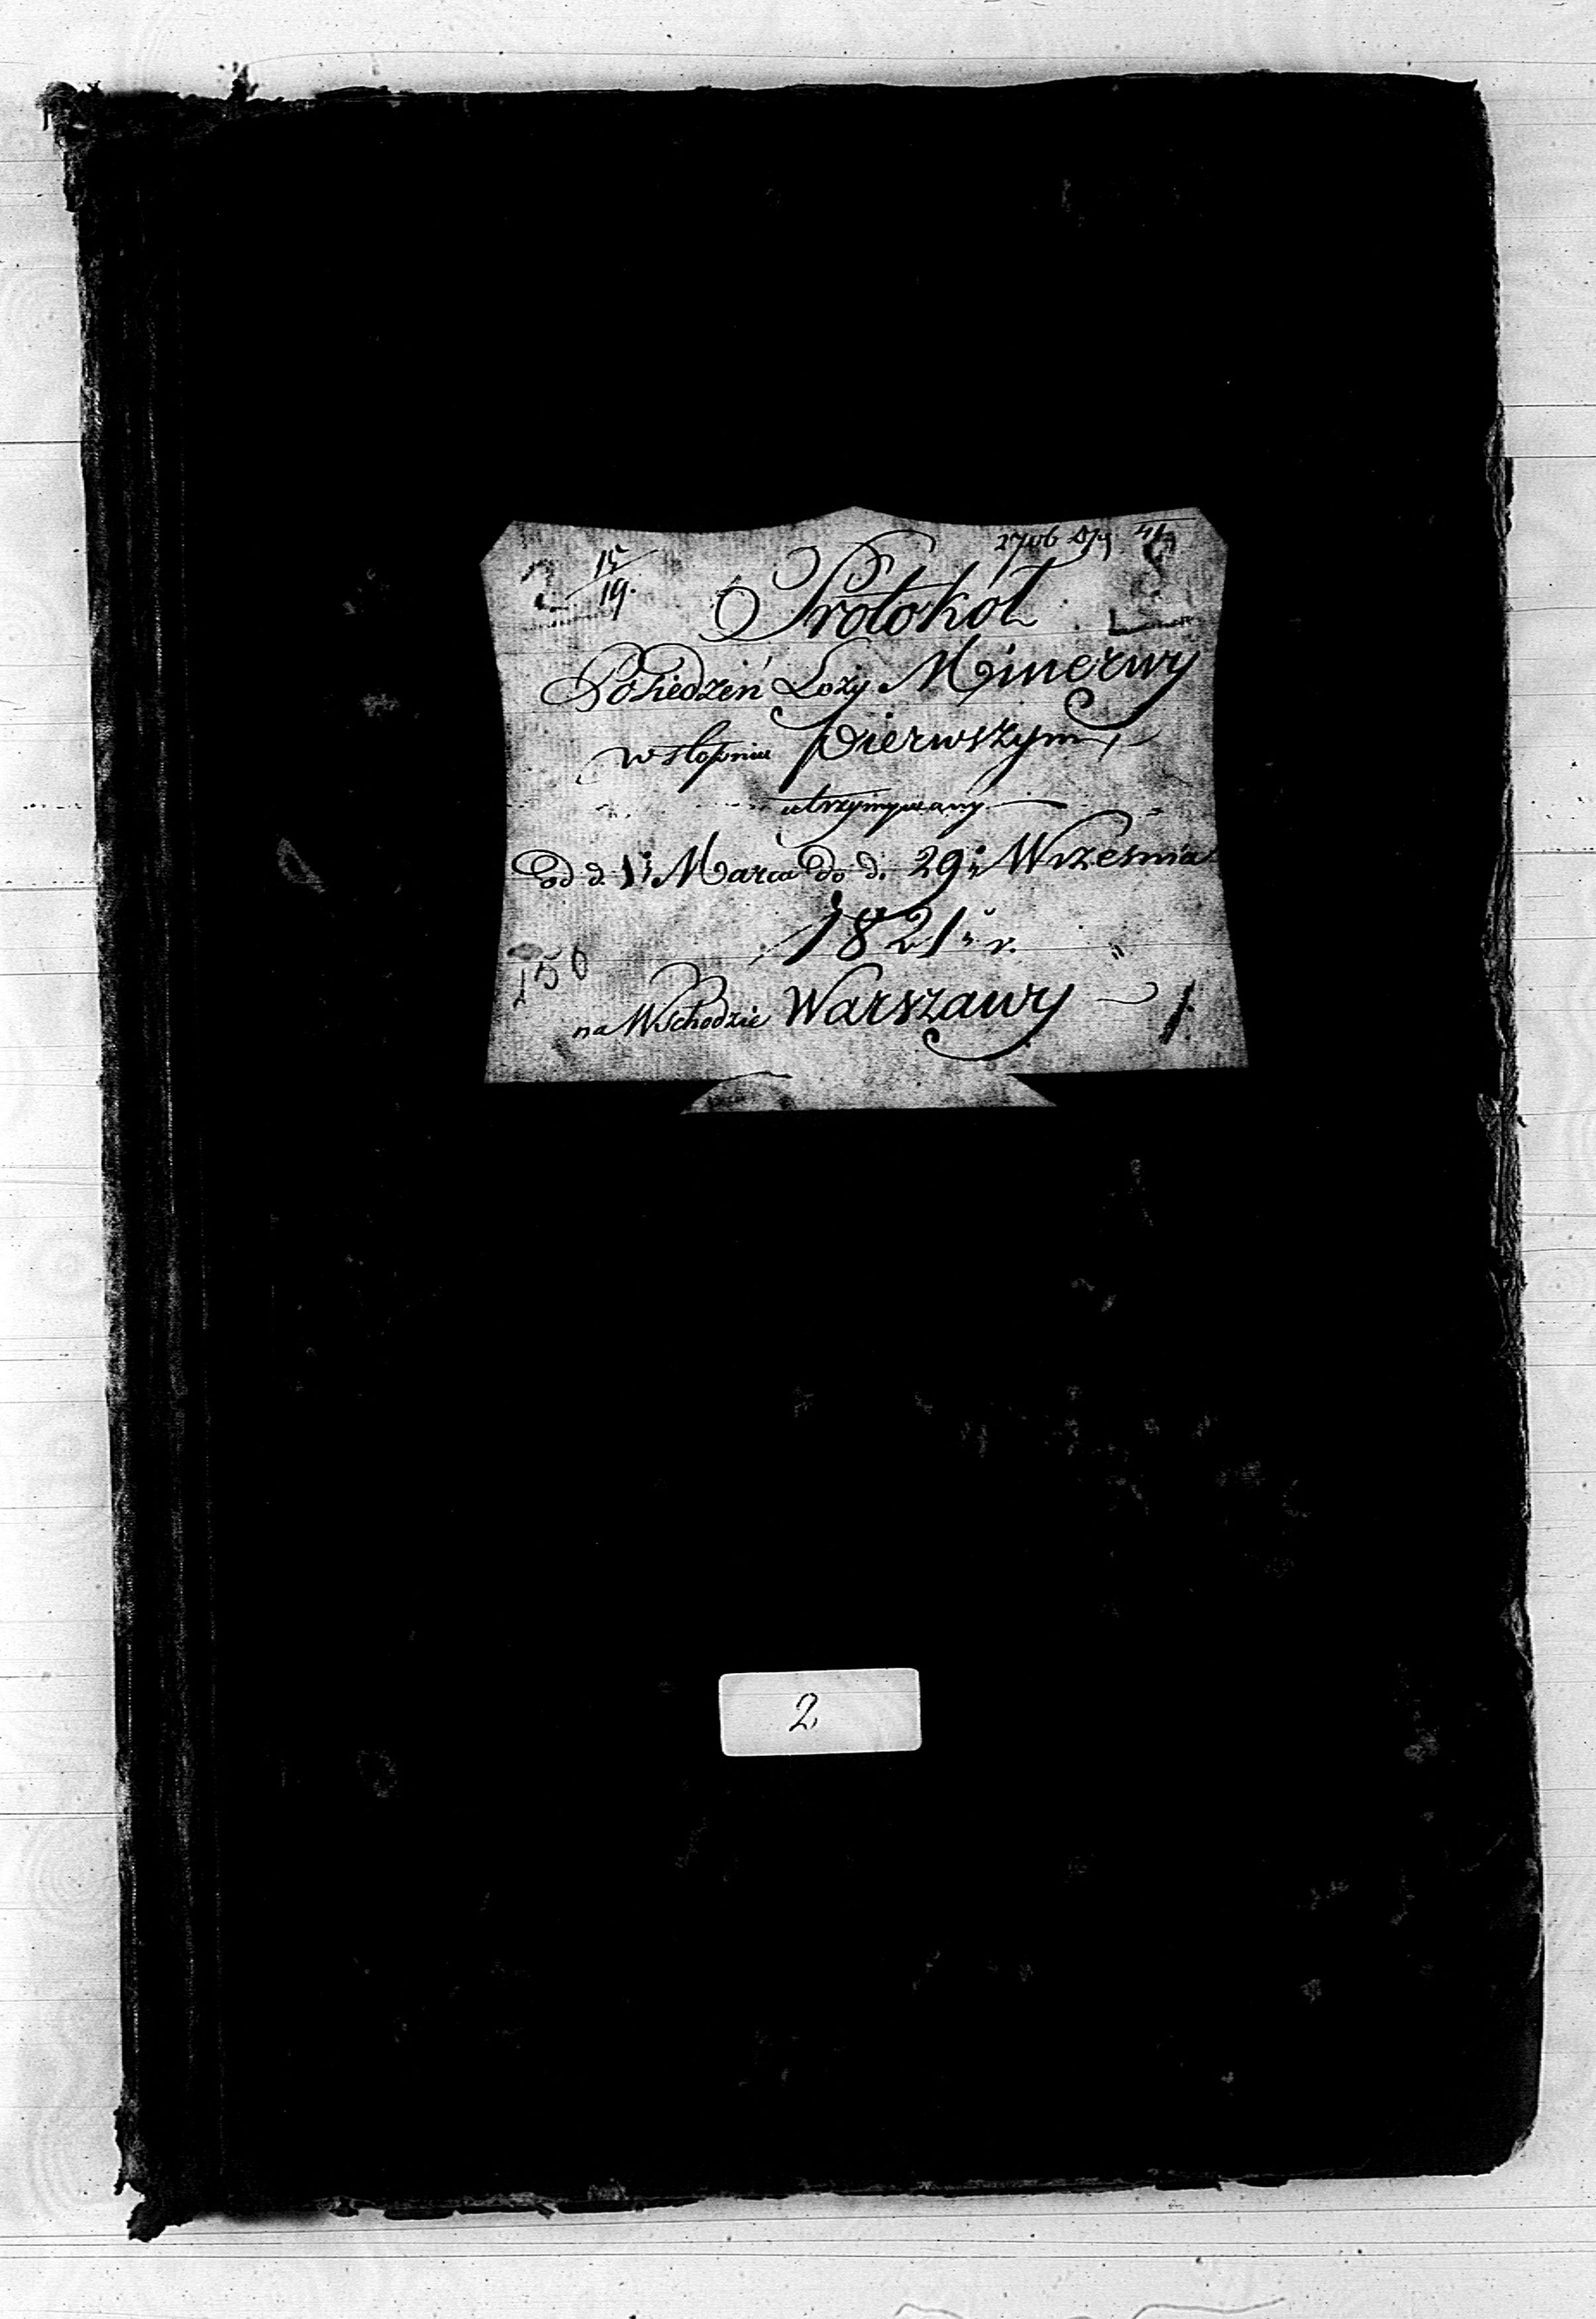 2 15/19.
Protokół
Posiedzeń Loży Minerwy
w stopniu pierwszym
utrzymywany
od d. 1. Marca do d. 29. Września
1821. r.
150
na Wschodzie Warszawy
1.
2